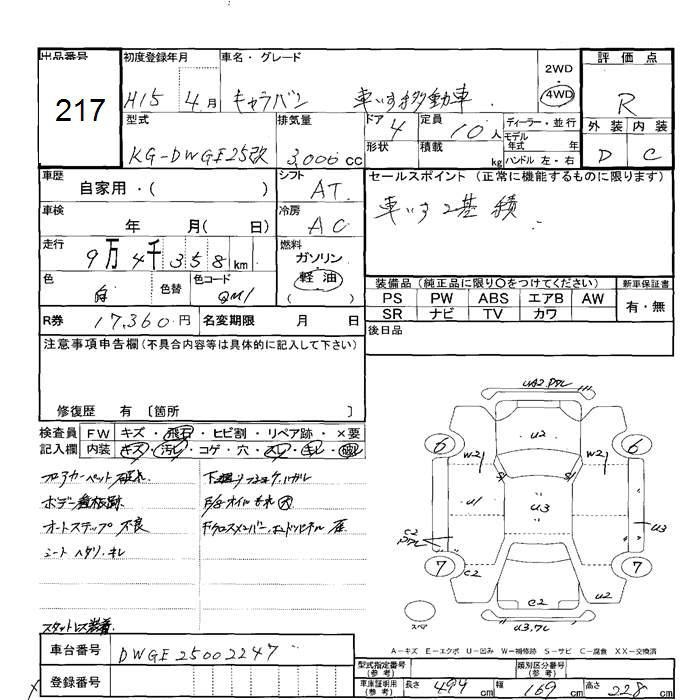 出品番号 初度登録年月 車名・グレード 評価点
217
H15 4月 キャラバン 車いす移動車
2WD・4WD
R
型式 排気量 ドア 4 定員 10人 ディーラー・並行
KG-DWGE25改 3,000 cc
形状 積載 kg
モデル年式 年
ハンドル 左・右
外装 内装
D C
車歴 自家用・( )
シフト AT
セールスポイント (正常に機能するものに限ります)
車いす2基積
車検 年 月( 日)
冷房 AC
走行 9万4千358km
燃料 ガソリン 軽油 ( )
色 白 色替 色コード QM1
装備品(純正品に限り○をつけてください) 新車保証書
PS PW ABS エアB AW 有・無
SR ナビ TV カワ
R券 17,360円 名変期限 月 日
後日品
注意事項申告欄(不具合内容等は具体的に記入して下さい)
修復歴 有〔箇所 〕
検査員 FW キズ・飛石・ヒビ割・リペア跡・×要
記入欄 内装 キズ・汚レ・コゲ・穴・スレ・キレ・
フロアカーペット破れ
ボデー看板跡
オートステップ不良
シート ヘタリ・キレ
スタットレス装着
下廻り
オイルもれ 大
U2
6 6
W2 W2
U1 U3 U3
C2
7 7
C2 C2 U2
スペア
A-キズ E-エクボ U-凹み W-補修跡 S-サビ C-腐食 XX-交換済
車台番号 DWGE25002247
登録番号
型式指定番号(参考) 類別区分番号(参考)
車庫証明用(参考) 長さ 494cm 幅 169cm 高さ 228cm